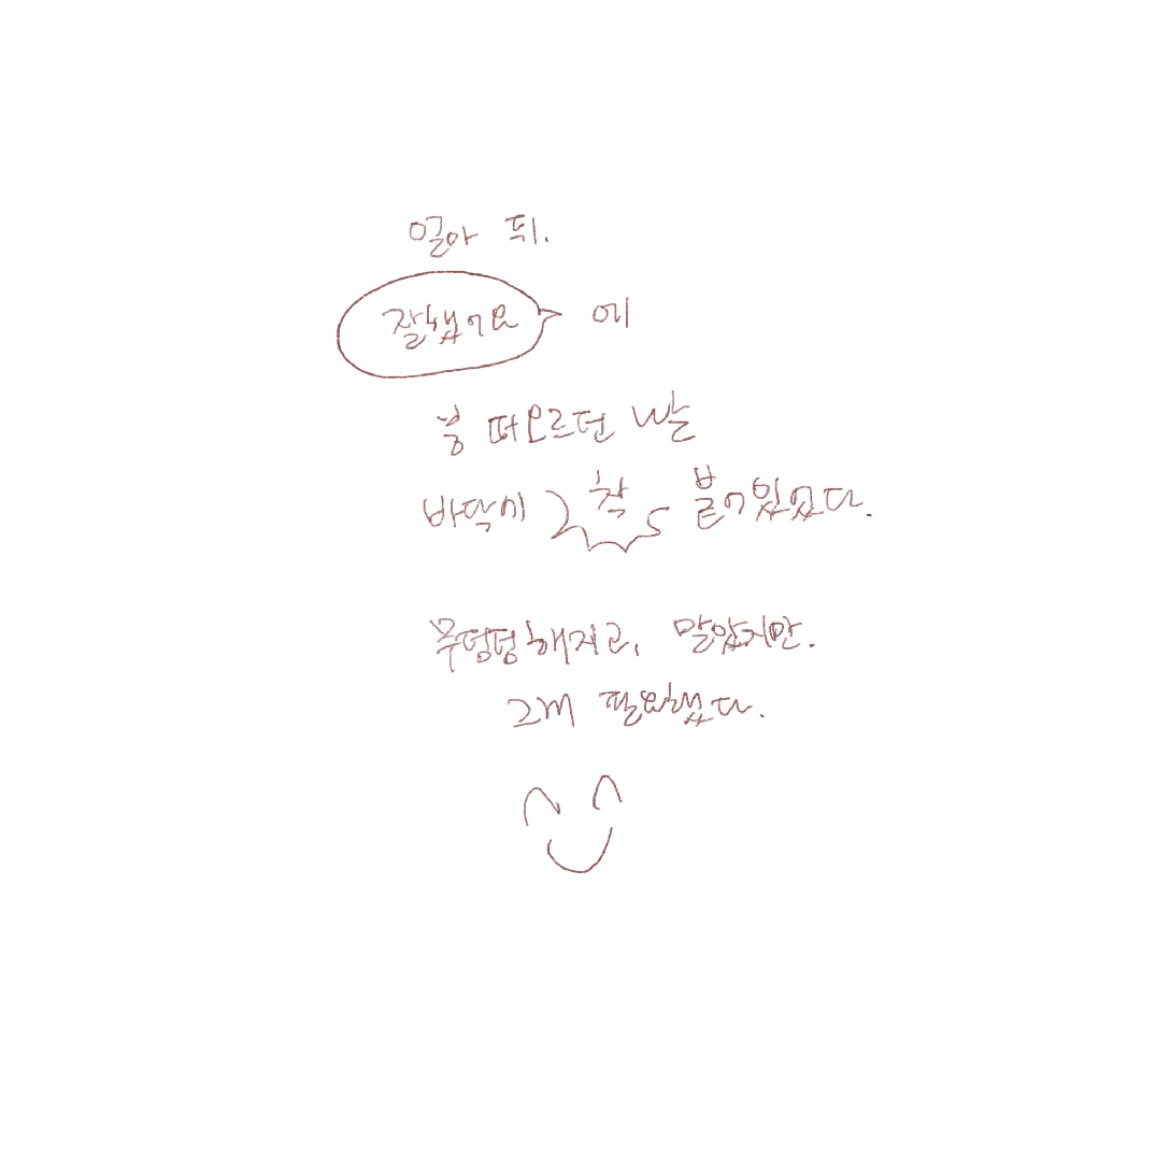 얼마 뒤.
잘했어요 에
붕 떠오르던 발
바닥이 착 붙어있었다.
무덤덤해지고, 말았지만.
그게 필요했다.